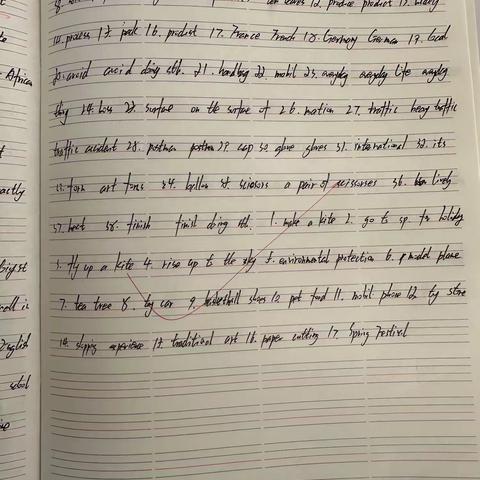 tea leaves 12. produce product 13. widely
14. process 15. pack 16. product 17. France French 18. Germany German 19. local
20. avoid avoid doing sth. 21. handbag 22. mobil 23. everyday everyday life everyday
thing 24. boss 25. surface on the surface of 26. mation 27. traffic heavy traffic
traffic accident 28. postman postmen 29. cap 30. glove gloves 31. international 32. its
33. form art forms 34. ballon 35. scissors a pair of scissorses 36. lively
37. heat 38. finish finish doing sth. 1. make a kite 2. go to sp. for holiday
3. fly up a kite 4. rise up to the sky 5. environmental protection 6. model plane
7. tea tree 8. by car 9. basketball shoes 10. pet food 11. mobil phone 12. toy store
14. shopping experience 15. traditional art 16. paper cutting 17. Spring Festival
African
exactly
biggest
small is
English
school